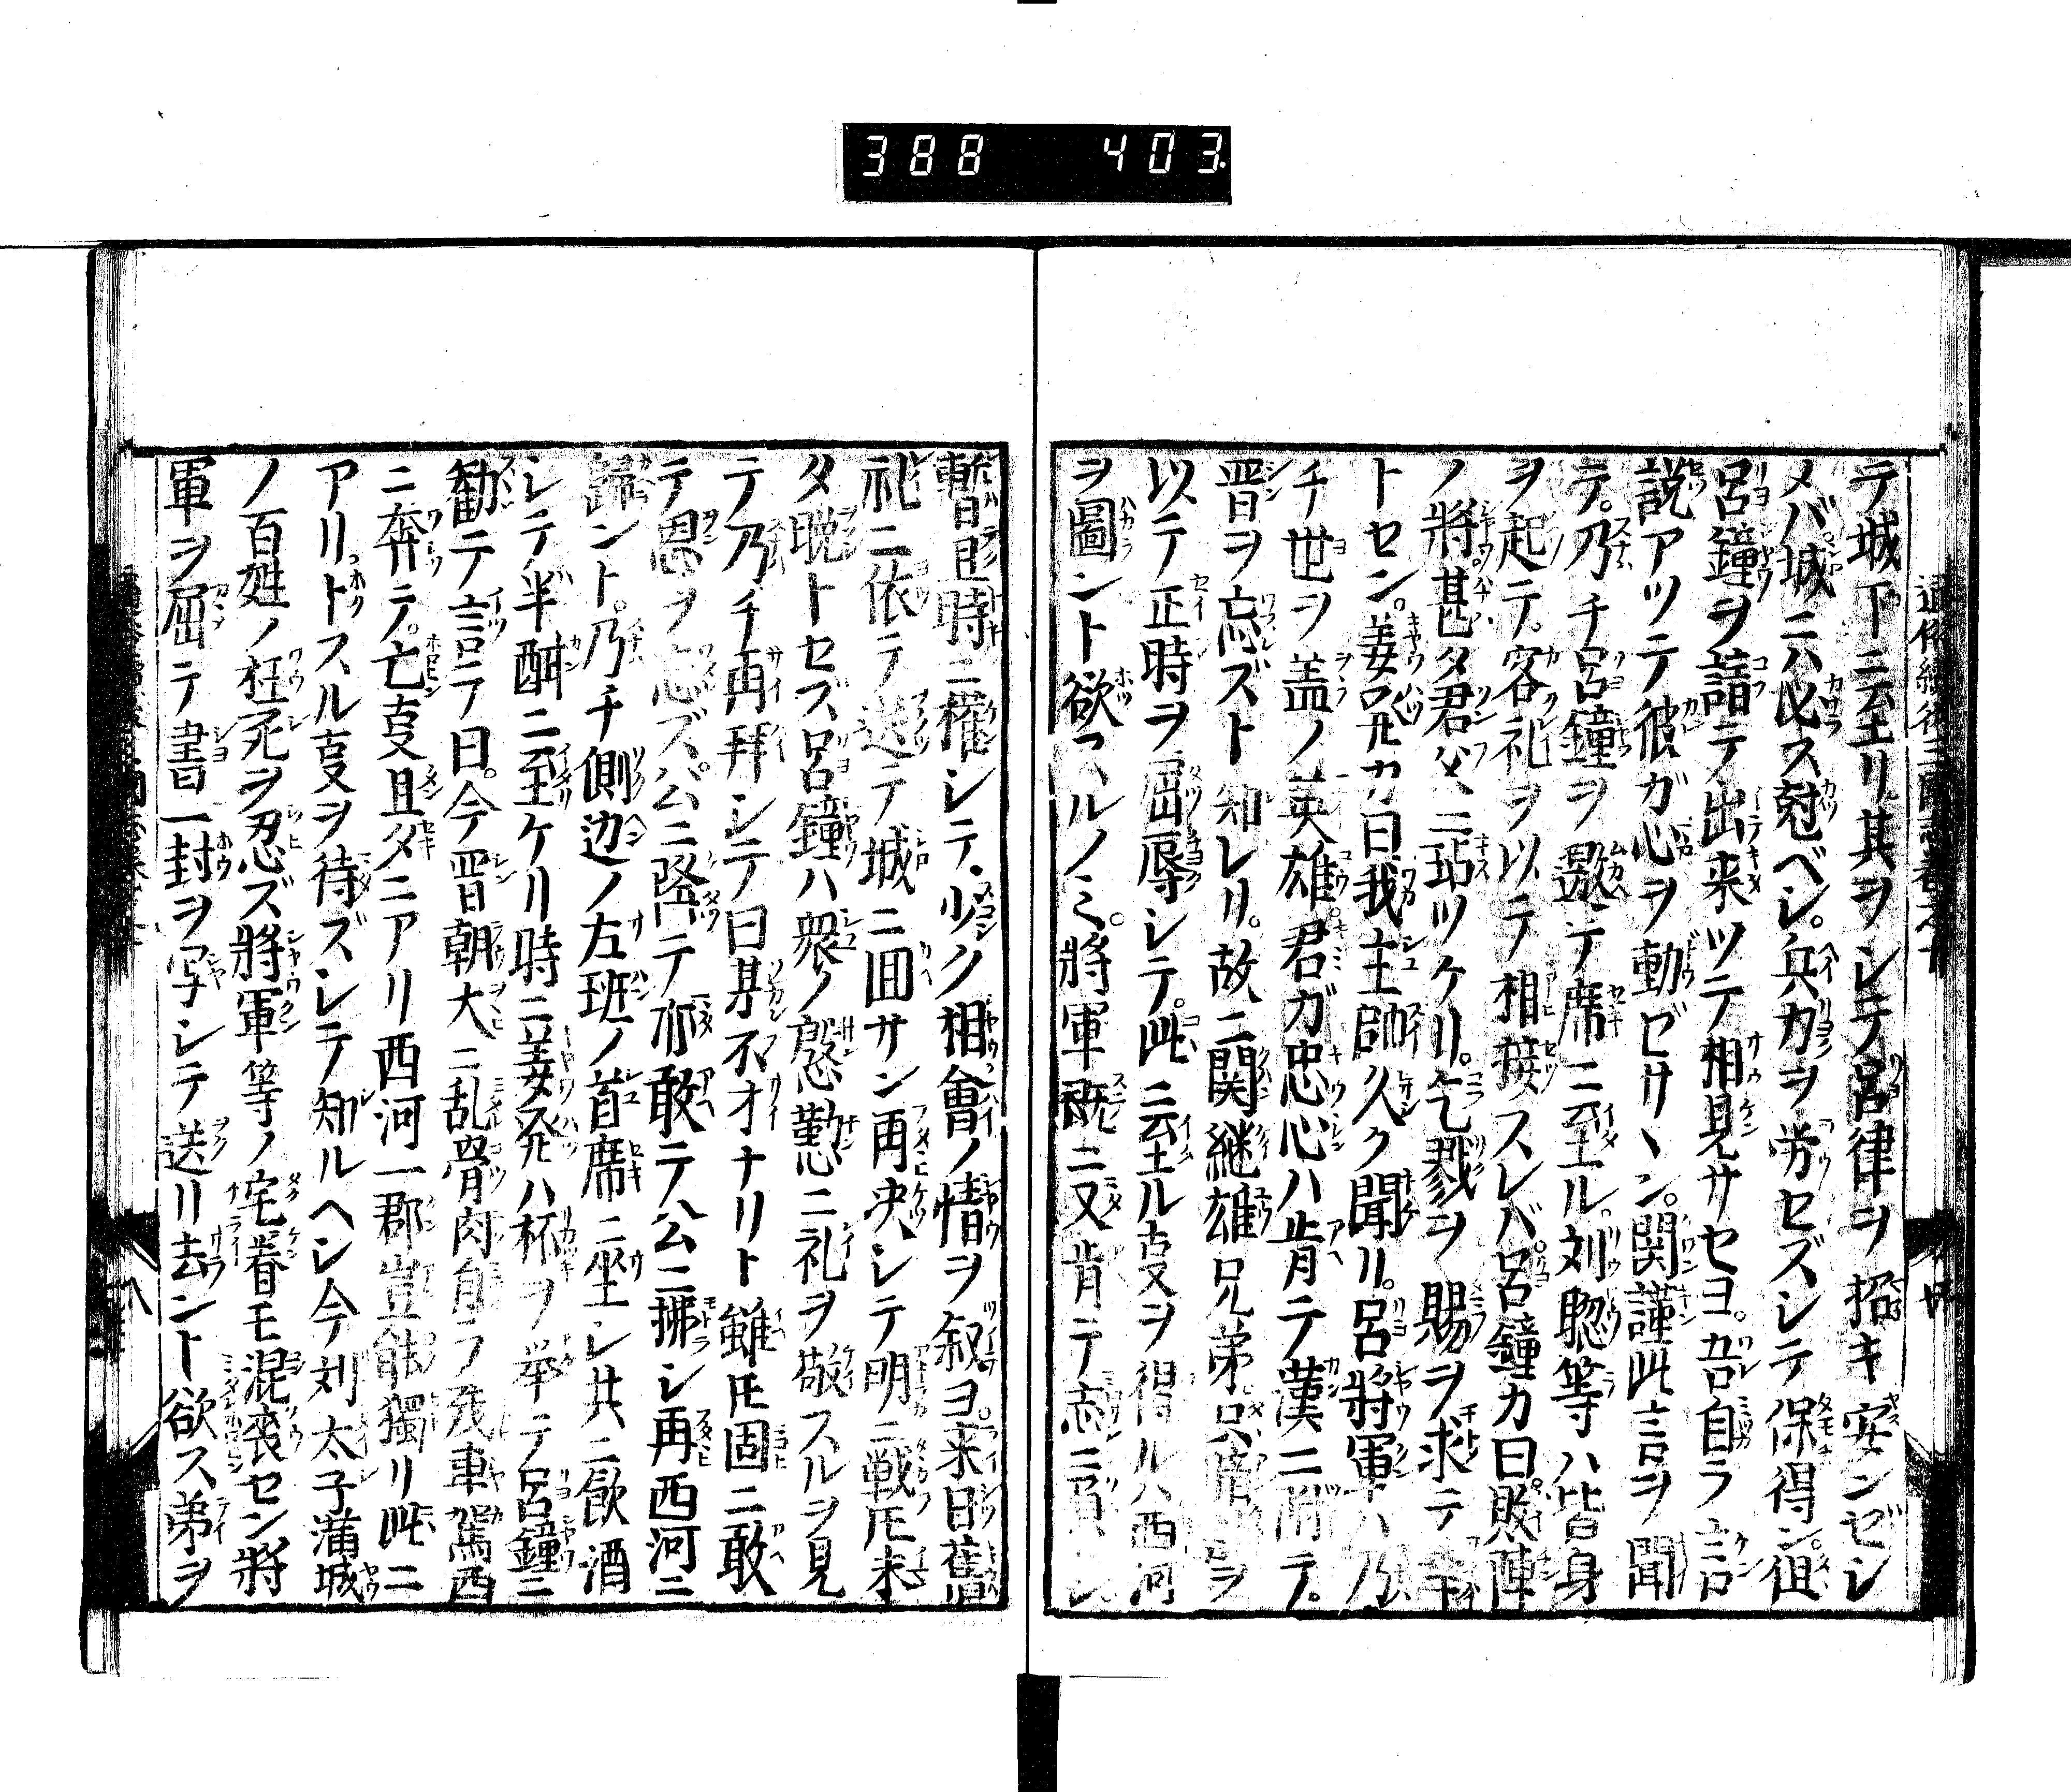 388 403
テ城下ニ至リ其ヲシテ呂律ヲ招キ安ンゼシ
メバ城ニハ必ス尅ベシ。兵力ヲ労セズシテ保得ン。但
呂鐘ヲ請テ出来ツテ相見サセヨ。吾自ラ言
説アツテ彼ガ心ヲ動ゼサヽン。関謹此言ヲ聞
テ。乃チ呂鐘ヲ邀テ席ニ至ル。刘聡等ハ皆身
ヲ起テ。客礼ヲ以テ相接スレバ。呂鐘カ曰敗陣
ノ將甚タ君父ニ玷ツケリ。乞戮ヲ賜ヲ求テ幸
トセン。姜発カ曰我主帥久ク聞リ。呂將軍ハ乃
チ世ヲ盖ノ英雄。君ガ忠心ハ肯テ漢ニ附テ。
晋ヲ忘ズト知レリ。故ニ関継雄兄弟
以テ正時ヲ屈辱シテ。此ニ至ル叓ヲ得ル八西河
ヲ圖ント欲スルノミ。將軍既ニ又肯テ志ニ負シ
暫且時ニ權シテ・少ク相會ノ情ヲ叙ヨ。来日舊
礼ニ依テ送テ城ニ囬サン再央シテ明ニ戦圧未
タ晩トセズ呂鐘ハ衆ノ慇懃ニ礼ヲ敬スルヲ見
テ乃チ再拜シテ曰某不才ナリト雖圧固ニ敢
テ恩ヲ忘ズ。公ニ降テ亦敢テ公ニ拂シ再西河ニ
歸ント。乃チ側边ノ左班ノ首席ニ坐シ共ニ飲酒
シテ半酣ニ至ケリ時ニ姜発ハ杯ヲ举テ呂鐘ニ
勧テ言テ曰。今晋朝大ニ乱骨肉自ラ残車駕西
ニ奔テ。亡叓且タニアリ西河一郡豈能獨リ此ニ
アリトスル叓ヲ待ズシテ知ルヘシ今刘太子蒲城
ノ百姓ノ枉死ヲ忍ズ將軍等ノ宅眷モ混喪セン將
軍ヲ屈テ書一封ヲ写シテ送リ去ント欲ス弟ヲ